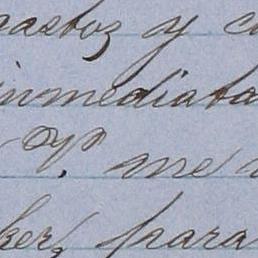 gastos y c
inmediata
V. me
ker, para